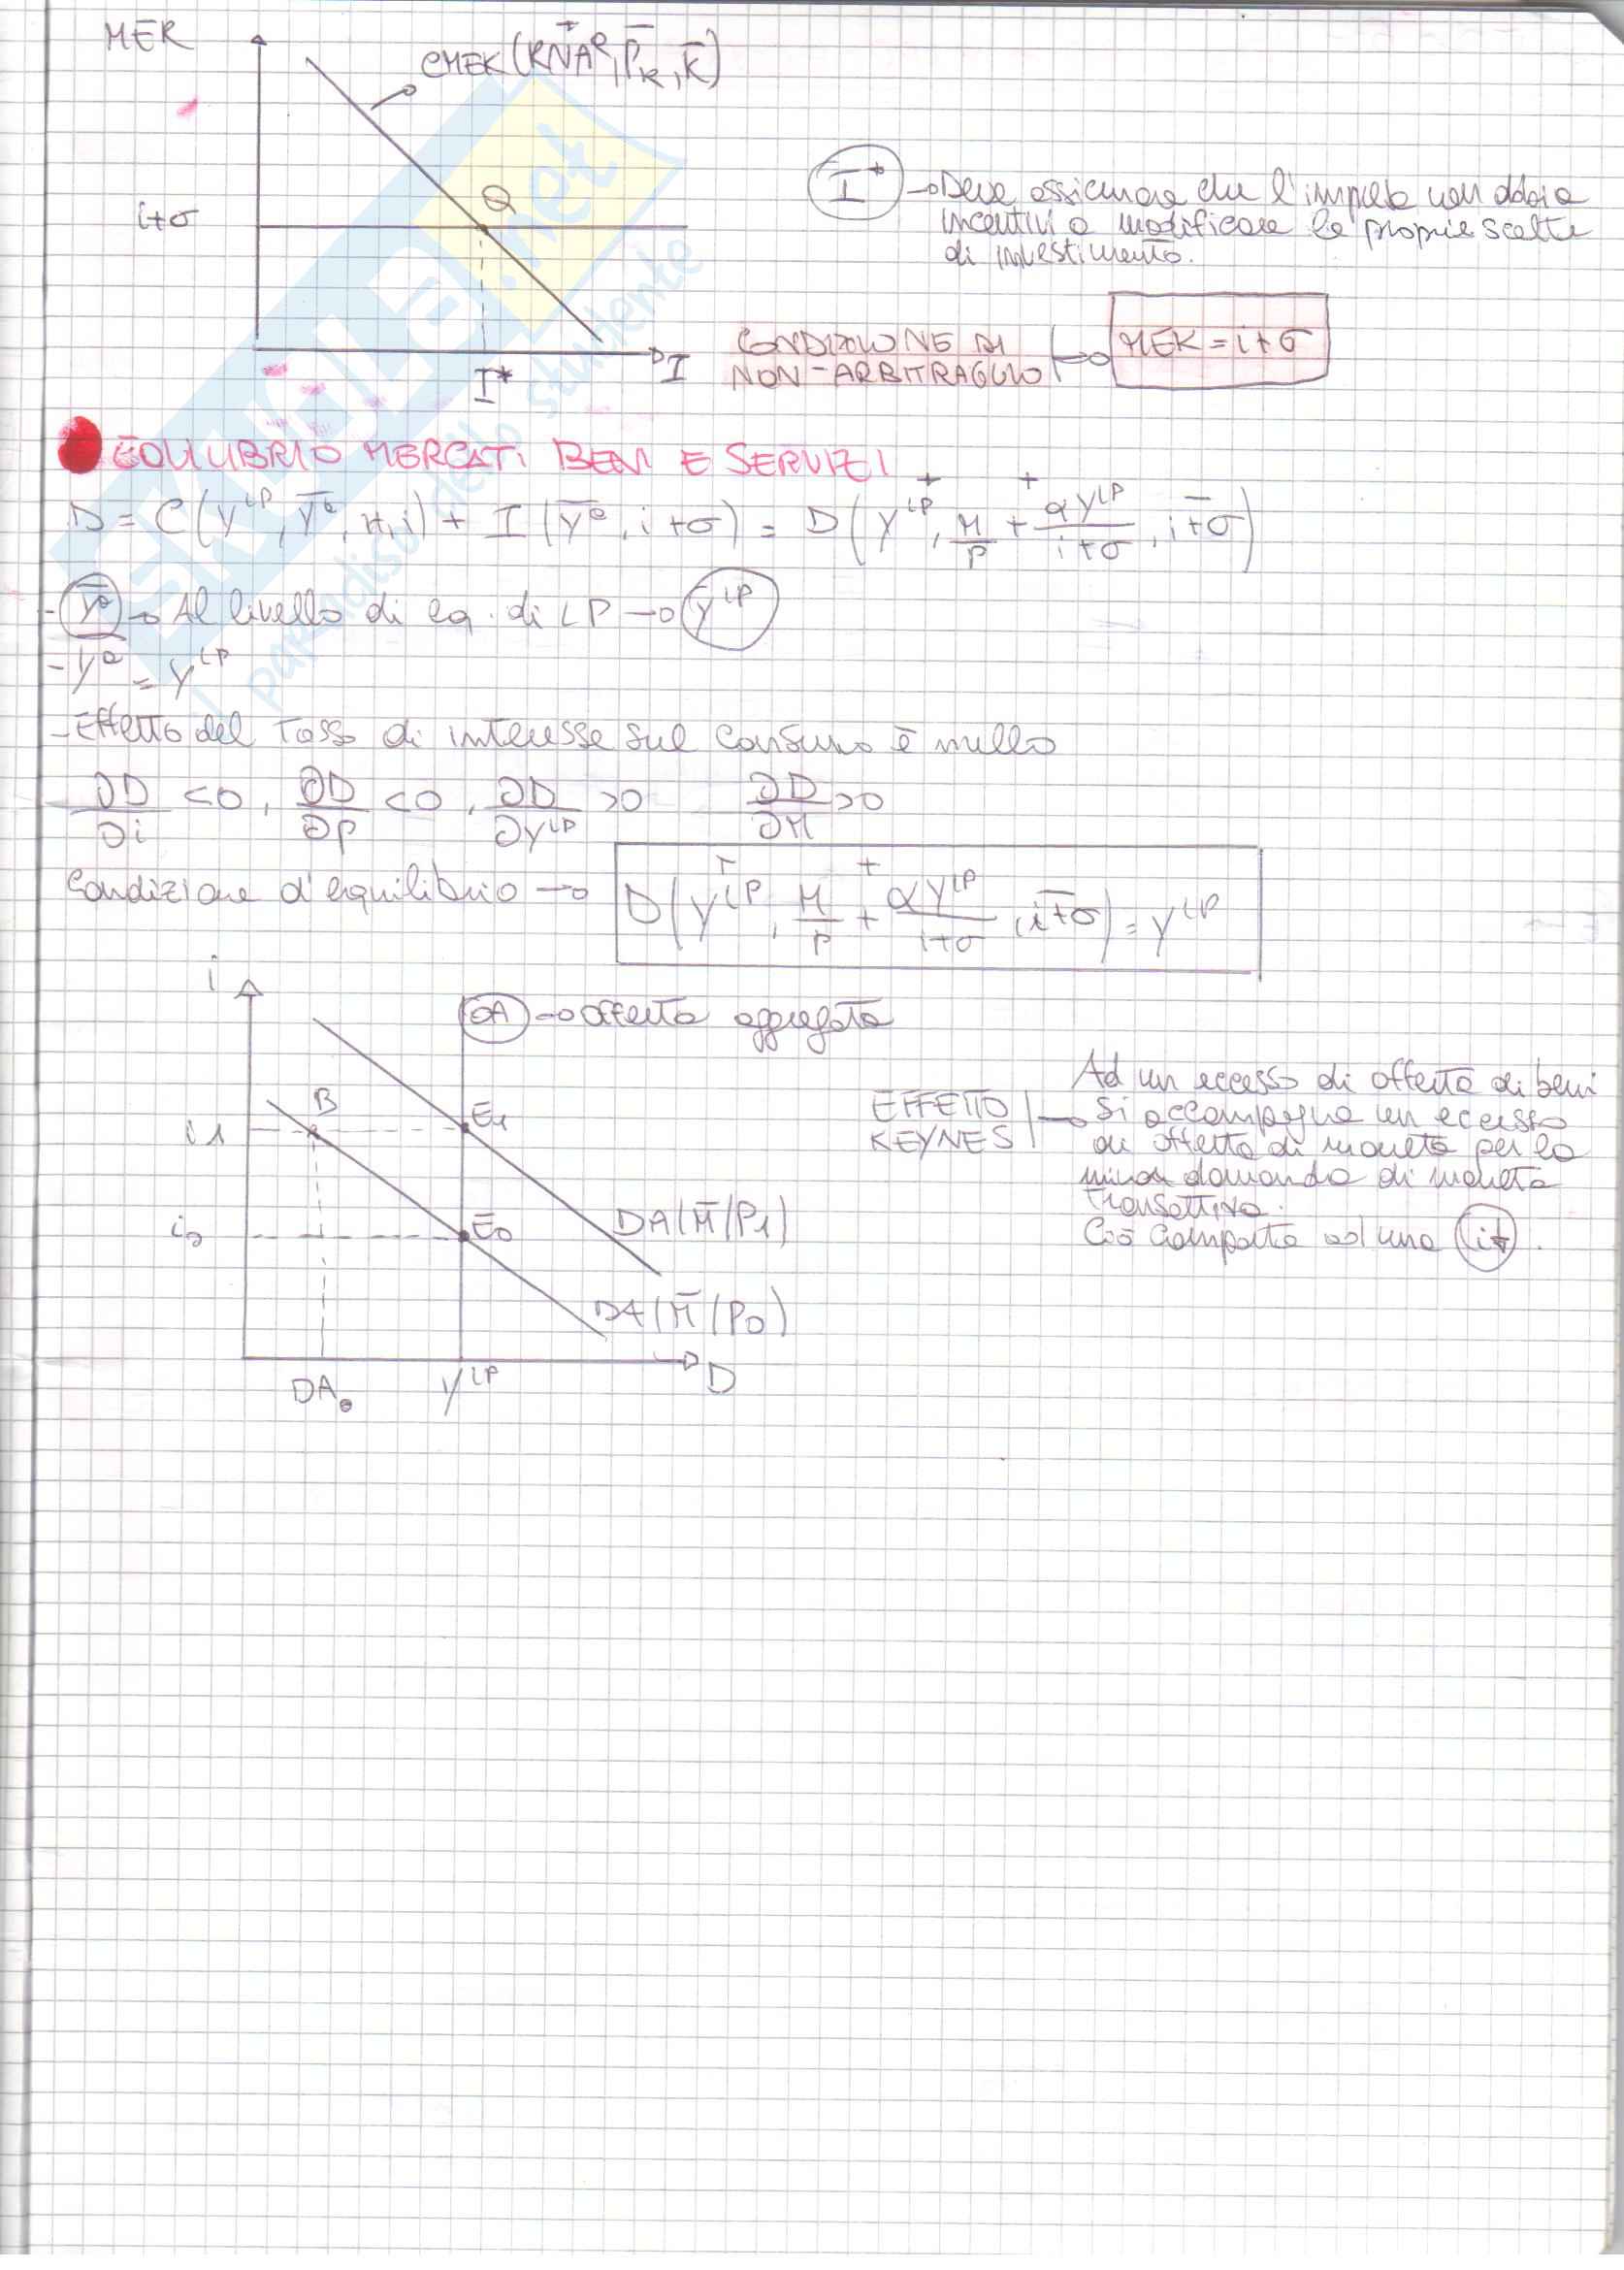 MEK
CMEK (RNAᵉ⁺, P̄_K, K̄)
Q
i+σ
I*
I
I* → Deve assicurare che l'impresa non abbia
incentivi a modificare le proprie scelte
di investimento.
CONDIZIONE DI
NON-ARBITRAGGIO → MEK = i+σ
EQUILIBRIO MERCATI BENI E SERVIZI
D = C (Y^LP, Ȳᵉ, H, i) + I (Ȳᵉ, i+σ) = D (Y^LP⁺, M/P + αY^LP/(i+σ)⁺, i+σ⁻)
- Ȳᵉ → Al livello di eq. di LP → Y^LP
- Yᵉ = Y^LP
- Effetto del tasso di interesse sul consumo è nullo
∂D/∂i <0, ∂D/∂P <0, ∂D/∂Y^LP >0 ∂D/∂M >0
Condizione d'equilibrio → D (Y^LP⁺, M/P + αY^LP/(i+σ)⁺, i+σ⁻) = Y^LP
i
OA → offerta aggregata
B
E₁
i1
DA (M̄/P₁)
E₀
i₀
DA (M̄/P₀)
DA₀
Y^LP
D
EFFETTO
KEYNES
Ad un eccesso di offerta di beni
si accompagna un eccesso
di offerta di moneta per la
minor domanda di moneta
transattiva.
Ciò comporta ad una